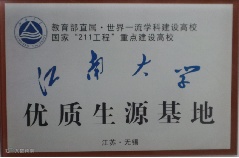 教育部直属·世界一流学科建设高校
国家“211工程”重点建设高校
江南大学
优质生源基地
江苏·无锡